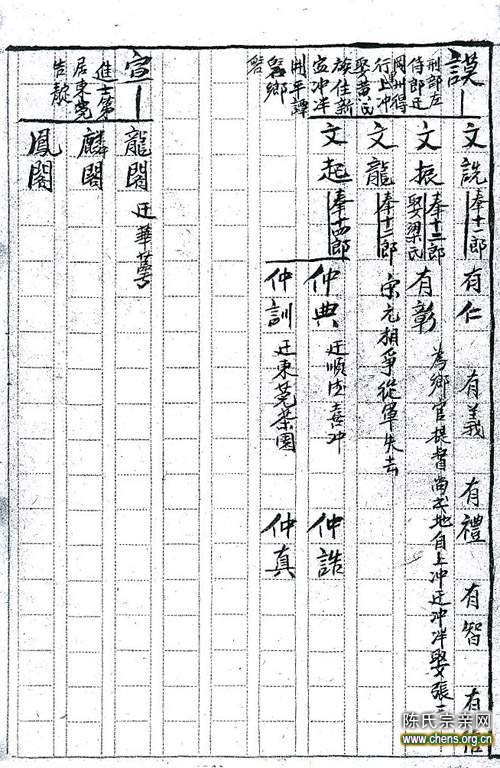 謨
刑部左
侍郎迁
岡州得
行上冲
娶黄氏
族住新
宣冲泮
開平譚
宣
進士第
居東莞
文說 奉十一郎 有仁 有義 有禮 有智
文振 奉十二郎 娶梁氏 有彰 為鄉官提督 地自上冲迁冲泮娶張
文龍 奉十二郎 宋元相爭從軍失去
文起 奉十四郎 仲典 迁順 喜冲 仲誥
仲訓 迁東莞茶園 仲真
龍閣 迁華萼
麟閣
鳳閣
陈氏宗亲网
www.chens.org.cn